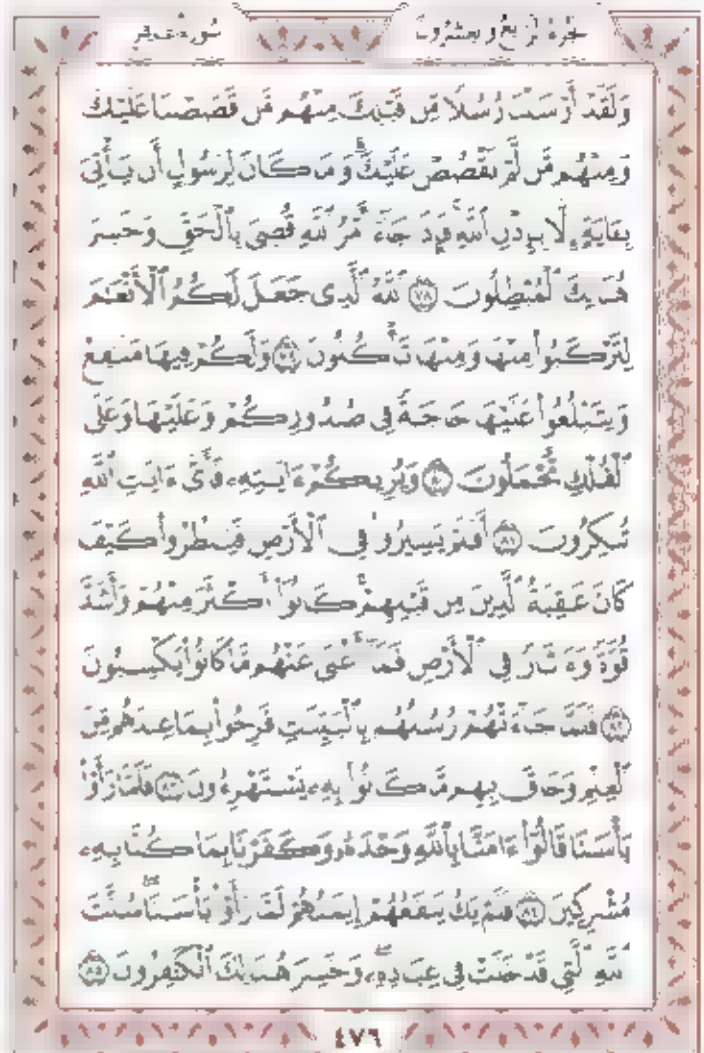 الجزء الرابع والعشرون سورة غافر
وَلَقَدْ أَرْسَلْنَا رُسُلًا مِّن قَبْلِكَ مِنْهُم مَّن قَصَصْنَا عَلَيْكَ
وَمِنْهُم مَّن لَّمْ نَقْصُصْ عَلَيْكَ ۗ وَمَا كَانَ لِرَسُولٍ أَن يَأْتِيَ
بِـَٔايَةٍ إِلَّا بِإِذْنِ ٱللَّهِ ۚ فَإِذَا جَآءَ أَمْرُ ٱللَّهِ قُضِىَ بِٱلْحَقِّ وَخَسِرَ
هُنَالِكَ ٱلْمُبْطِلُونَ ٧٨ ٱللَّهُ ٱلَّذِى جَعَلَ لَكُمُ ٱلْأَنْعَٰمَ
لِتَرْكَبُوا۟ مِنْهَا وَمِنْهَا تَأْكُلُونَ ٧٩ وَلَكُمْ فِيهَا مَنَٰفِعُ
وَلِتَبْلُغُوا۟ عَلَيْهَا حَاجَةً فِى صُدُورِكُمْ وَعَلَيْهَا وَعَلَى
ٱلْفُلْكِ تُحْمَلُونَ ٨٠ وَيُرِيكُمْ ءَايَٰتِهِۦ فَأَىَّ ءَايَٰتِ ٱللَّهِ
تُنكِرُونَ ٨١ أَفَلَمْ يَسِيرُوا۟ فِى ٱلْأَرْضِ فَيَنظُرُوا۟ كَيْفَ
كَانَ عَٰقِبَةُ ٱلَّذِينَ مِن قَبْلِهِمْ ۚ كَانُوٓا۟ أَكْثَرَ مِنْهُمْ وَأَشَدَّ
قُوَّةً وَءَاثَارًا فِى ٱلْأَرْضِ فَمَآ أَغْنَىٰ عَنْهُم مَّا كَانُوا۟ يَكْسِبُونَ
٨٢ فَلَمَّا جَآءَتْهُمْ رُسُلُهُم بِٱلْبَيِّنَٰتِ فَرِحُوا۟ بِمَا عِندَهُم مِّنَ
ٱلْعِلْمِ وَحَاقَ بِهِم مَّا كَانُوا۟ بِهِۦ يَسْتَهْزِءُونَ ٨٣ فَلَمَّا رَأَوْا۟
بَأْسَنَا قَالُوٓا۟ ءَامَنَّا بِٱللَّهِ وَحْدَهُۥ وَكَفَرْنَا بِمَا كُنَّا بِهِۦ
مُشْرِكِينَ ٨٤ فَلَمْ يَكُ يَنفَعُهُمْ إِيمَٰنُهُمْ لَمَّا رَأَوْا۟ بَأْسَنَا ۖ سُنَّتَ
ٱللَّهِ ٱلَّتِى قَدْ خَلَتْ فِى عِبَادِهِۦ ۖ وَخَسِرَ هُنَالِكَ ٱلْكَٰفِرُونَ ٨٥
٤٧٦